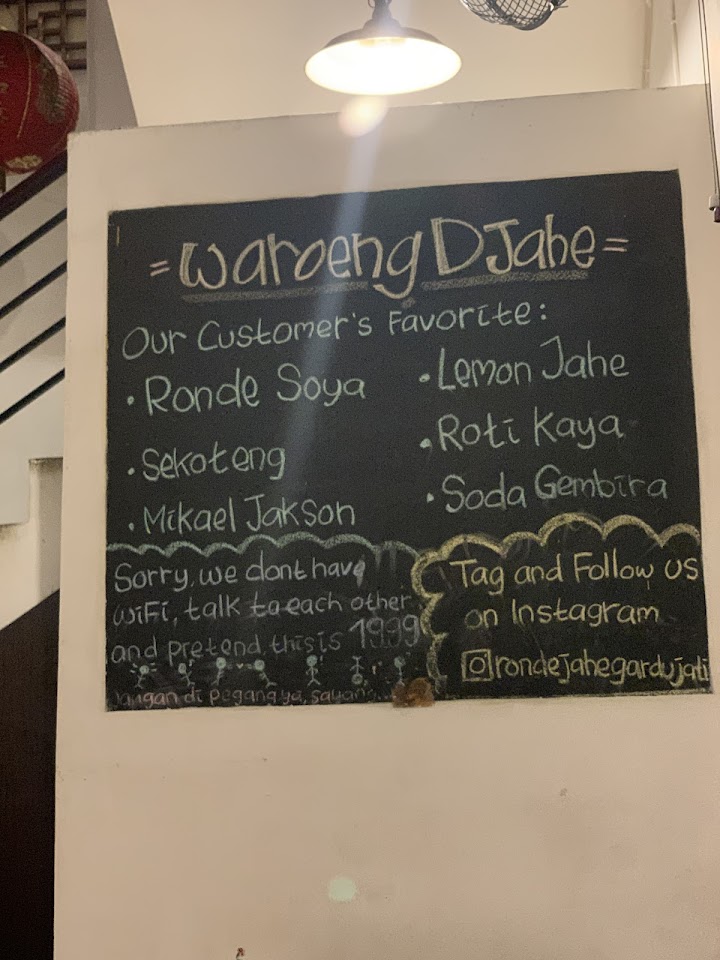 =Waroeng DJahe=
Our Customer's Favorite:
• Ronde Soya
• Sekoteng
• Mikael Jakson
• Lemon Jahe
• Roti Kaya
• Soda Gembira
Sorry, we dont have
WiFi, talk to each other
and pretend this is 1999
Jangan di pegang ya, sayang...
Tag and Follow us
on Instagram
rondejahegardujati